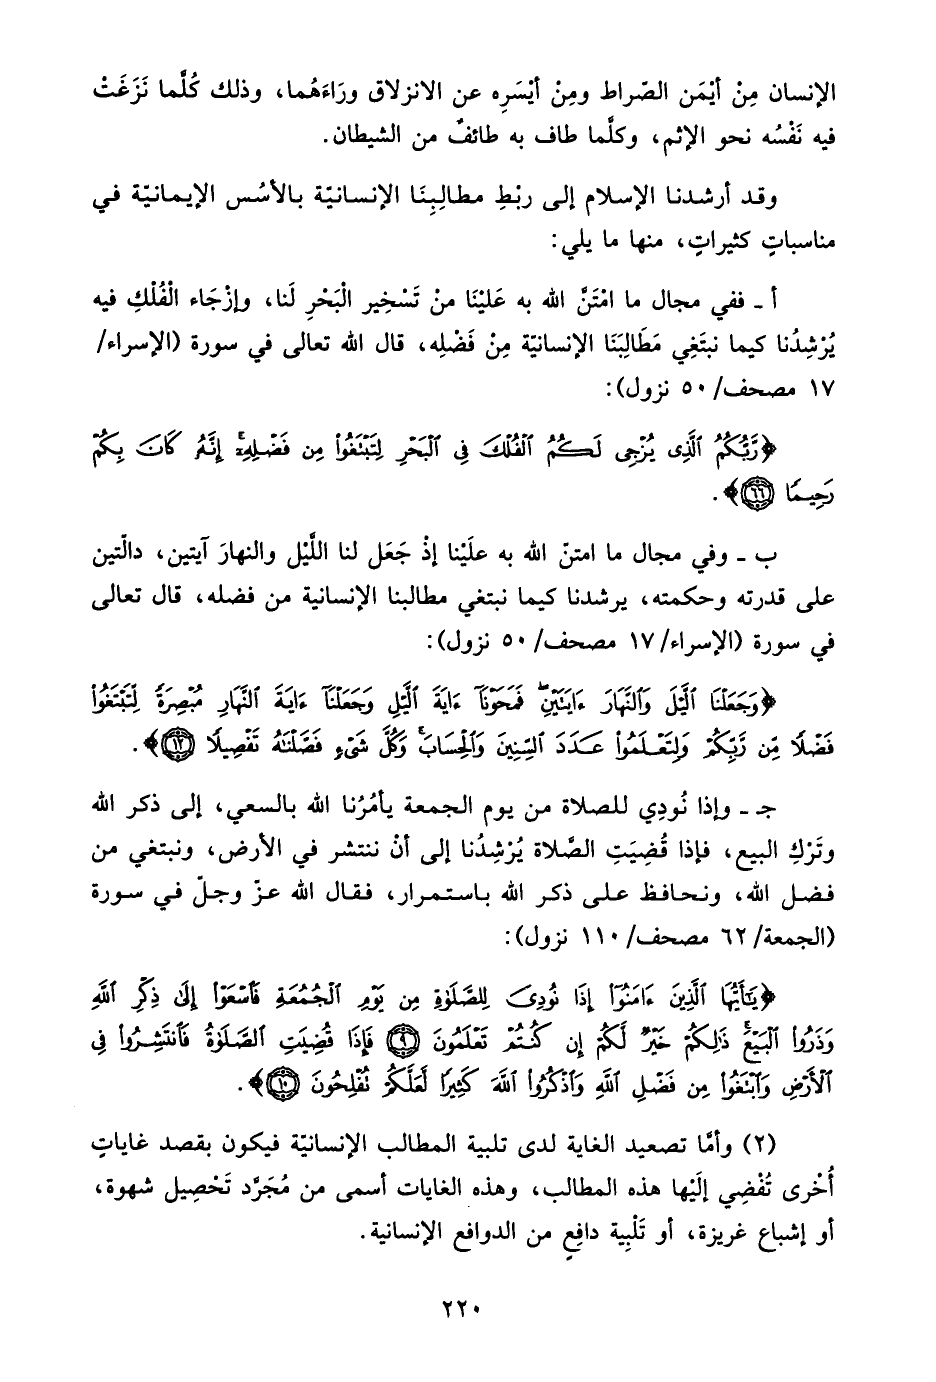 الإنسان مِنْ أيْمَن الصّراط ومِنْ أيْسَرِه عن الانزلاق ورَاءَهُما، وذلك كُلَّما نَزَغَتْ
فيه نَفْسُه نحو الإثم، وكلَّما طاف به طائفٌ من الشيطان.
وقد أرشدنا الإسلام إلى ربْطِ مطالبِنَا الإنسانيّة بالأسُس الإيمانيّة في
مناسباتٍ كثيراتٍ، منها ما يلي:
أ - ففي مجال ما امْتَنَّ الله به عَليْنَا منْ تَسْخِير الْبَحْرِ لَنا، وإزْجَاء الْفُلْكِ فيه
يُرْشِدُنا كيما نبتَغِي مَطَالِبَنَا الإنسانيّة مِنْ فَضْلِه، قال الله تعالى في سورة (الإسراء/
١٧ مصحف/ ٥٠ نزول):
﴿رَّبُّكُمُ ٱلَّذِى يُزْجِى لَكُمُ ٱلْفُلْكَ فِى ٱلْبَحْرِ لِتَبْتَغُوا۟ مِن فَضْلِهِۦٓ ۚ إِنَّهُۥ كَانَ بِكُمْ
رَحِيمًا ٦٦﴾.
ب - وفي مجال ما امتنّ الله به علَيْنا إذْ جَعَل لنا اللَّيْل والنهارَ آيتين، دالّتين
على قدرته وحكمته، يرشدنا كيما نبتغي مطالبنا الإنسانية من فضله، قال تعالى
في سورة (الإسراء/ ١٧ مصحف/ ٥٠ نزول):
﴿وَجَعَلْنَا ٱلَّيْلَ وَٱلنَّهَارَ ءَايَتَيْنِ ۖ فَمَحَوْنَآ ءَايَةَ ٱلَّيْلِ وَجَعَلْنَآ ءَايَةَ ٱلنَّهَارِ مُبْصِرَةً لِّتَبْتَغُوا۟
فَضْلًا مِّن رَّبِّكُمْ وَلِتَعْلَمُوا۟ عَدَدَ ٱلسِّنِينَ وَٱلْحِسَابَ ۚ وَكُلَّ شَىْءٍ فَصَّلْنَٰهُ تَفْصِيلًا ١٢﴾.
جـ - وإذا نُودِي للصلاة من يوم الجمعة يأمُرُنا الله بالسعي، إلى ذكر الله
وتَرْكِ البيع، فإذا قُضِيَتِ الصَّلاة يُرْشِدُنا إلى أنْ ننتشر في الأرض، ونبتغي من
فضل الله، ونحافظ على ذكر الله باستمرار، فقال الله عزّ وجلّ في سورة
(الجمعة/ ٦٢ مصحف/ ١١٠ نزول):
﴿يَٰٓأَيُّهَا ٱلَّذِينَ ءَامَنُوٓا۟ إِذَا نُودِىَ لِلصَّلَوٰةِ مِن يَوْمِ ٱلْجُمُعَةِ فَٱسْعَوْا۟ إِلَىٰ ذِكْرِ ٱللَّهِ
وَذَرُوا۟ ٱلْبَيْعَ ۚ ذَٰلِكُمْ خَيْرٌ لَّكُمْ إِن كُنتُمْ تَعْلَمُونَ ٩ فَإِذَا قُضِيَتِ ٱلصَّلَوٰةُ فَٱنتَشِرُوا۟ فِى
ٱلْأَرْضِ وَٱبْتَغُوا۟ مِن فَضْلِ ٱللَّهِ وَٱذْكُرُوا۟ ٱللَّهَ كَثِيرًا لَّعَلَّكُمْ تُفْلِحُونَ ١٠﴾.
(٢) وأمَّا تصعيد الغاية لدى تلبية المطالب الإنسانيّة فيكون بقصد غاياتٍ
أُخْرى تُفْضِي إلَيْها هذه المطالب، وهذه الغايات أسمى من مُجَرَّد تَحْصِيل شهوة،
أو إشباع غريزة، أو تَلْبِية دافِعٍ من الدوافع الإنسانية.
٢٢٠